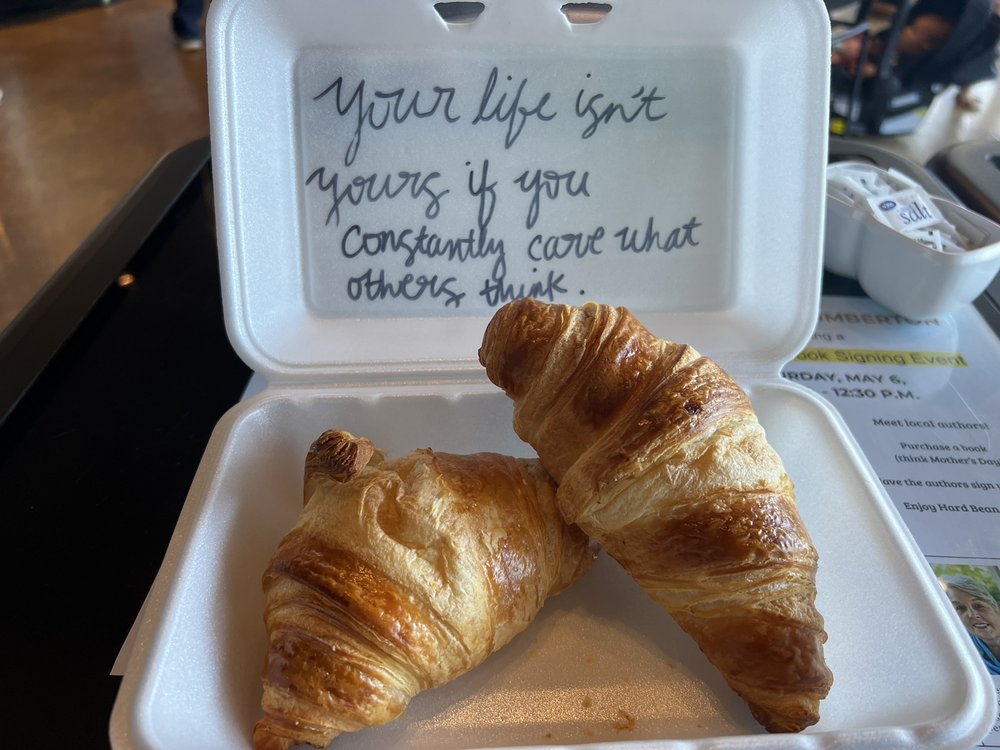 Your life isn't
yours if you
constantly care what
others think.
salt
MBERTON
ook Signing Event
RDAY, MAY 6,
- 12:30 P.M.
Meet local authors!
Purchase a book
(think Mother's Day
ave the authors sign
Enjoy Hard Bean